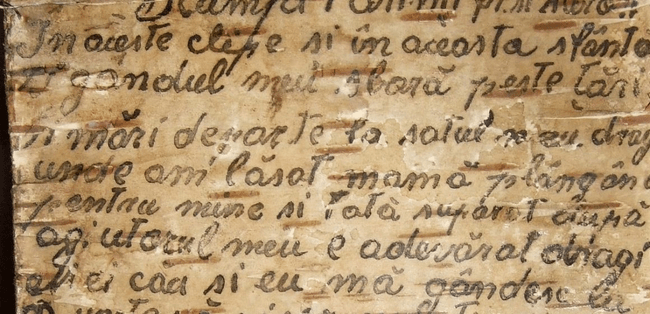 Scumpa
În aceste clipe si în aceasta sfântă
gândul meu sbară peste țări
mări departe la satul meu drag
unde am lăsat mamă plângând
pentru mine si tată supărat după
agiutorul meu e adevărat dragi
căci si eu mă gândesc la